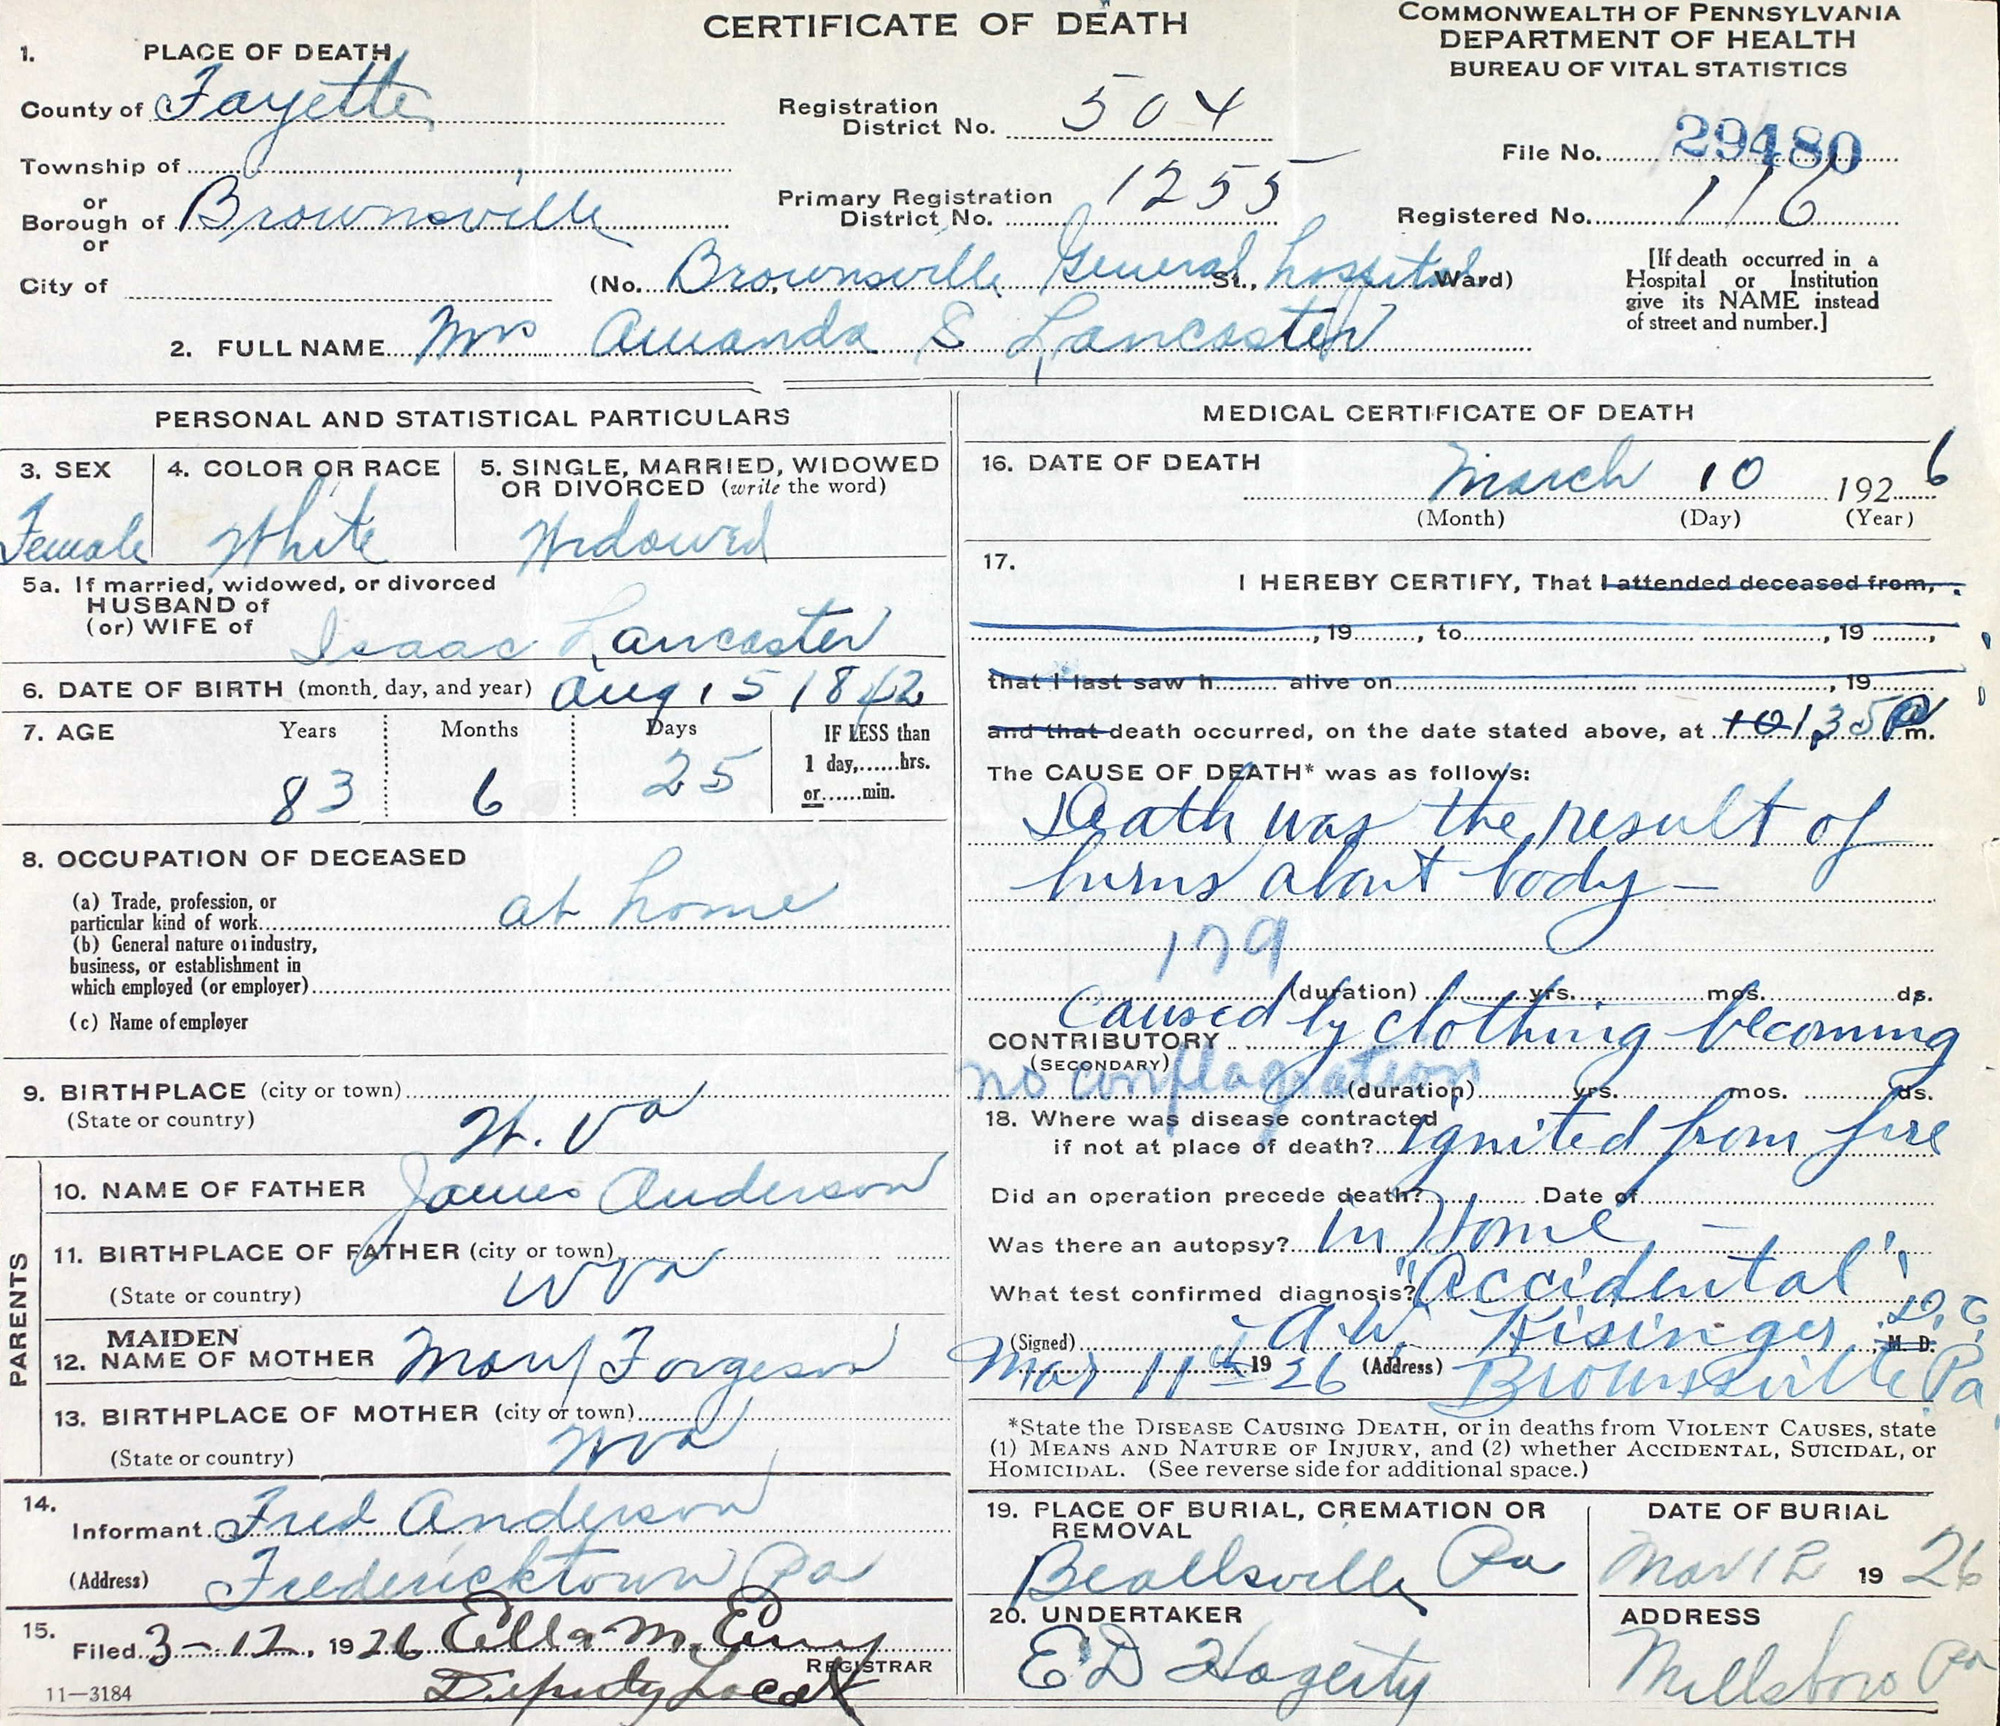 CERTIFICATE OF DEATH
COMMONWEALTH OF PENNSYLVANIA
DEPARTMENT OF HEALTH
BUREAU OF VITAL STATISTICS
1. PLACE OF DEATH
County of Fayette
Registration District No. 504
File No. 29480
Township of
or
Borough of Brownsville
or
Primary Registration District No. 1255
Registered No. 116
City of
(No. Brownsville General St., hospital Ward)
[If death occurred in a Hospital or Institution give its NAME instead of street and number.]
2. FULL NAME Mrs Amanda S Lancaster
PERSONAL AND STATISTICAL PARTICULARS
3. SEX
4. COLOR OR RACE
5. SINGLE, MARRIED, WIDOWED OR DIVORCED (write the word)
Female White Widowed
5a. If married, widowed, or divorced
HUSBAND of
(or) WIFE of
Isaac Lancaster
6. DATE OF BIRTH (month, day, and year) Aug 15 1842
7. AGE Years Months Days
83 6 25
IF LESS than
1 day,......hrs.
or......min.
8. OCCUPATION OF DECEASED
(a) Trade, profession, or
particular kind of work at home
(b) General nature of industry,
business, or establishment in
which employed (or employer)
(c) Name of employer
9. BIRTHPLACE (city or town)
(State or country) W. Va
PARENTS
10. NAME OF FATHER James Anderson
11. BIRTHPLACE OF FATHER (city or town)
(State or country) W Va
12. MAIDEN NAME OF MOTHER Mary Forgeson
13. BIRTHPLACE OF MOTHER (city or town)
(State or country) W Va
14.
Informant Fred Anderson
(Address) Fredericktown Pa
15.
Filed 3-12, 1926 Ella M. Emy
REGISTRAR
Deputy Local
11—3184
MEDICAL CERTIFICATE OF DEATH
16. DATE OF DEATH
March 10 1926
(Month) (Day) (Year)
17.
I HEREBY CERTIFY, That I attended deceased from,
, 19 , to , 19 ,
that I last saw h alive on , 19
and that death occurred, on the date stated above, at 10 1,35 a m.
The CAUSE OF DEATH* was as follows:
Death was the result of
burns about body —
179
(duration) yrs. mos. ds.
Caused by clothing becoming
CONTRIBUTORY
(SECONDARY)
no conflagration
(duration) yrs. mos. ds.
18. Where was disease contracted
if not at place of death? ignited from fire
Did an operation precede death? Date of
in Home —
Was there an autopsy?
What test confirmed diagnosis? "Accidental"
(Signed) A.W. Kisinger, M. D.
Mar 11th 1926 (Address) Brownsville Pa
*State the DISEASE CAUSING DEATH, or in deaths from VIOLENT CAUSES, state
(1) MEANS AND NATURE OF INJURY, and (2) whether ACCIDENTAL, SUICIDAL, or
HOMICIDAL. (See reverse side for additional space.)
19. PLACE OF BURIAL, CREMATION OR REMOVAL
Beallsville Pa
DATE OF BURIAL
Mar 12 1926
20. UNDERTAKER
E D Hagerty
ADDRESS
Millsboro Pa